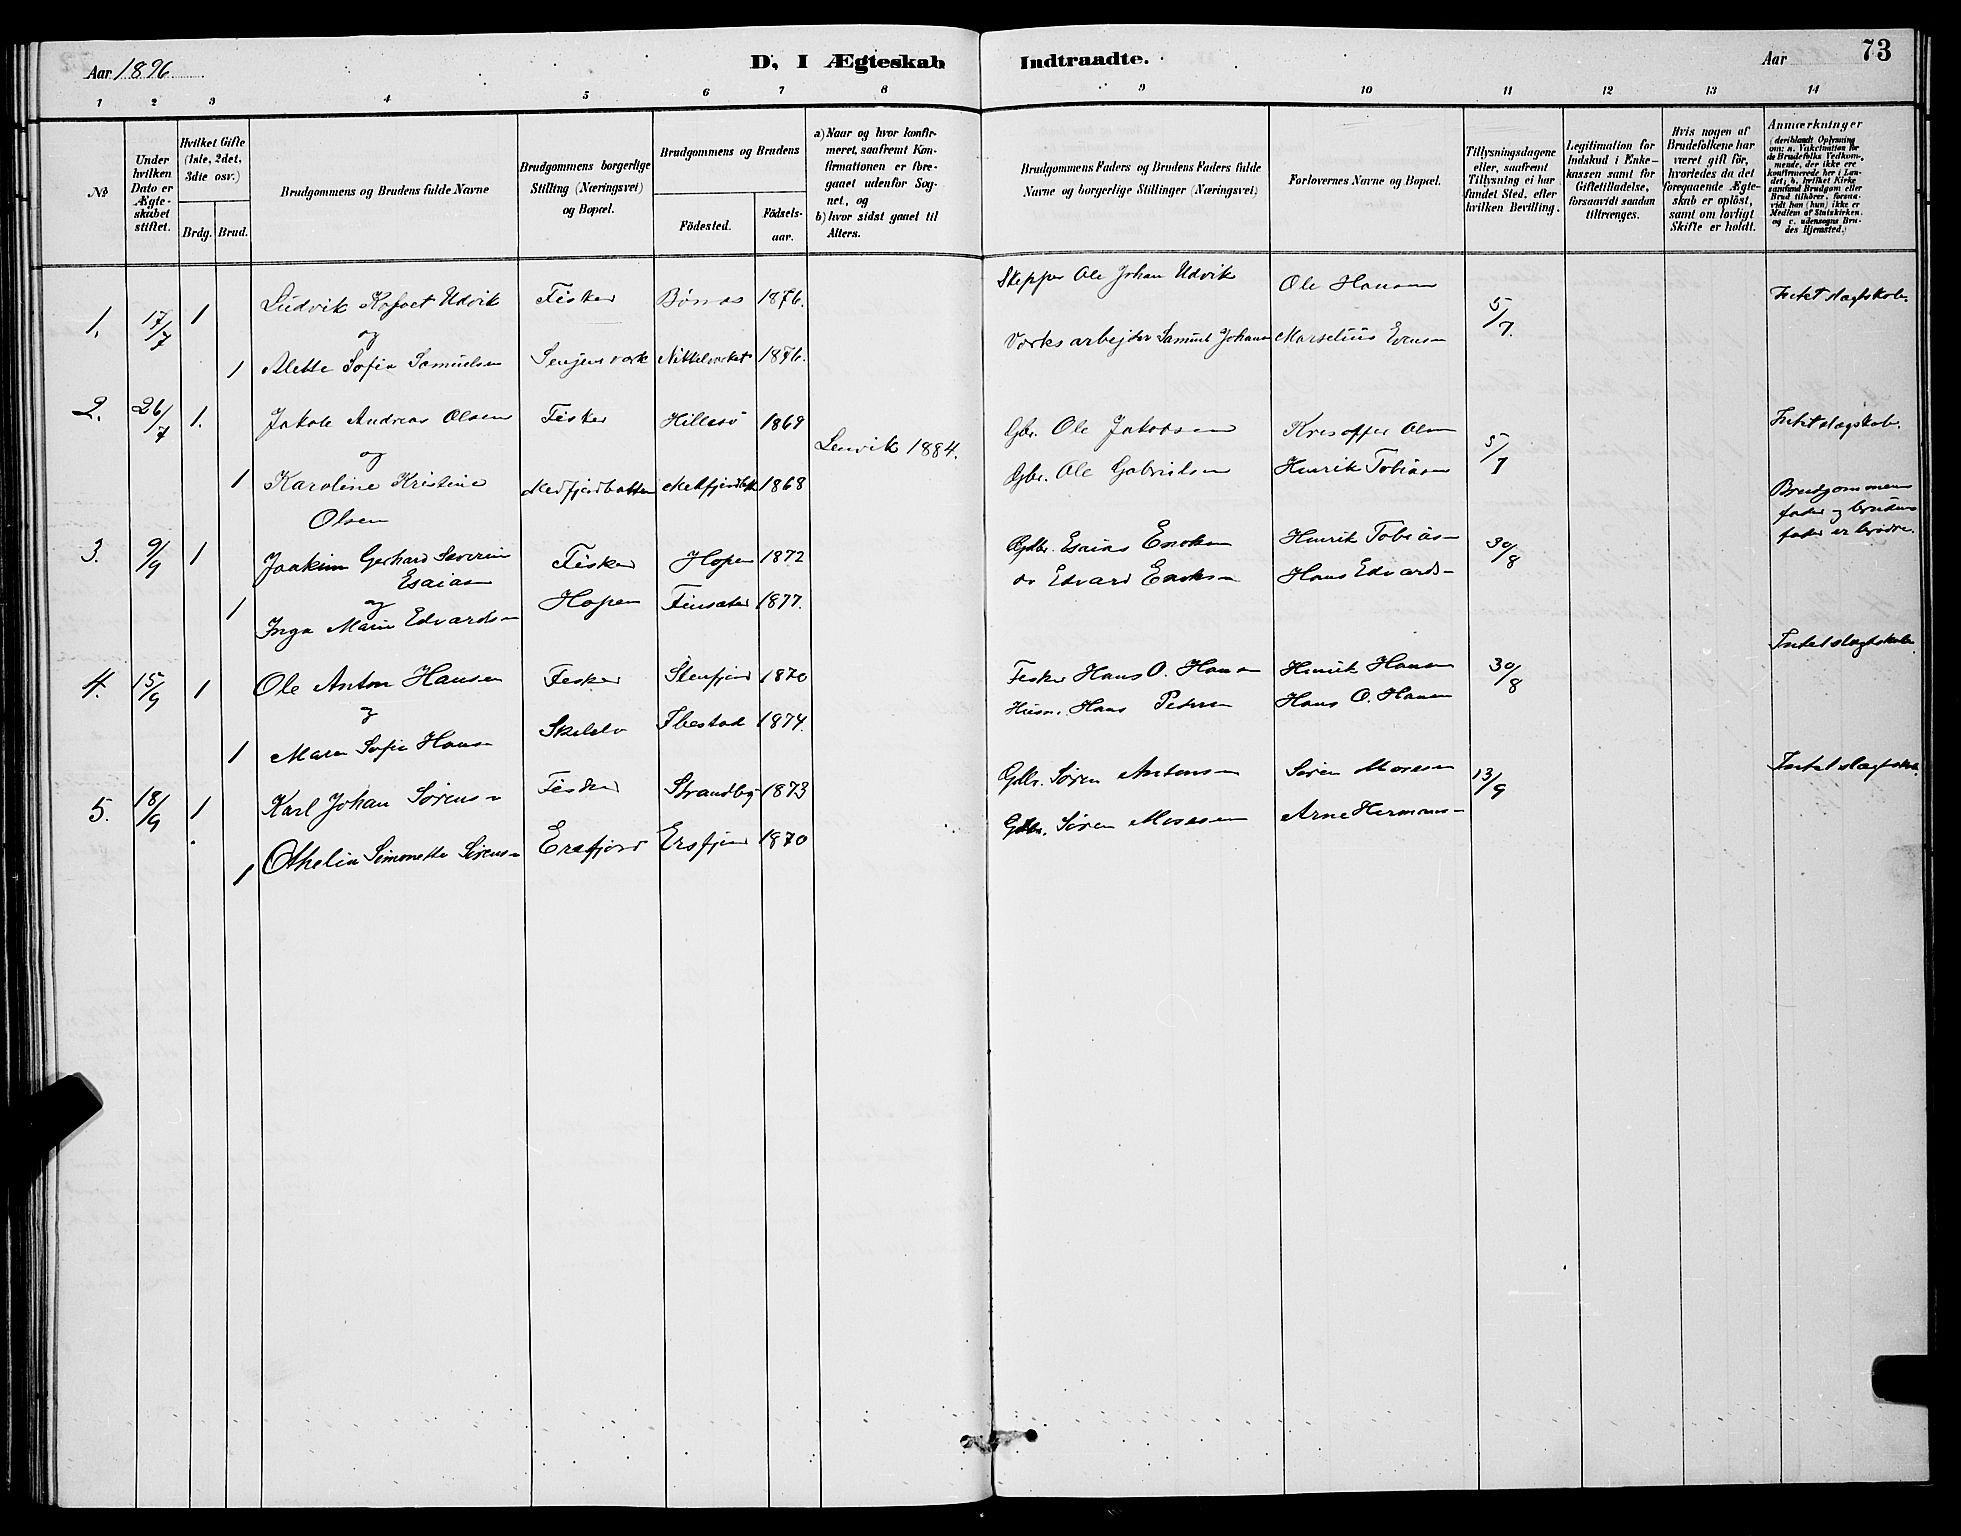 Aar 1896
D, I Ægteskab Indtraadte.
Aar
73
1 2 3 4 5 6 7 8 9 10 11 12 13 14
No
Under hvilken Dato er Ægteskabet stiftet.
Hvilket Gifte (1ste, 2det, 3die osv.)
Brdg. Brud.
Brudgommens og Brudens fulde Navne
Brudgommens borgerlige Stilling (Næringsvei) og Bopæl.
Brudgommens og Brudens
Fødested. Fødsels-aar.
a) Naar og hvor konfir-
meret, saafremt Kon-
firmationen er fore-
gaaet udenfor Sog-
net, og
b) hvor sidst gaaet til
Alters.
Brudgommens Faders og Brudens Faders fulde
Navne og borgerlige Stillinger (Næringsvei)
Forlovernes Navne og Bopæl.
Tillysningsdagene
eller, saafremt
Tillysning ei har
fundet Sted, efter
hvilken Bevilling.
Legitimation for
Indskud i Enke-
kassen samt for
Giftetilladelse,
forsaavidt saadan
tiltrænges.
Hvis nogen af
Brudefolkene har
været gift før,
hvorledes da det
foregaaende Ægte-
skab er opløst,
samt om lovligt
Skifte er holdt.
Anmærkninger
(deriblandt Oplysning
om: a. Vakcination for
de Brudefolks Vedkom-
mende, der ikke ere
konfirmerede her i Lan-
det, b. hvilket Kirke
samfund Brudgom eller
Brud tilhører, forsaa-
vidt han (hun) ikke er
Medlem af Statskirken.
og c. udensogns Bru-
des Hjemsted.)
1. 17/7 1 Ludvik Kofoet Udvik Fisker 1876. Skipper Ole Johan Udvik Ole Hansen 5/7. Intet slagtskab.
og
1 Alette Sofie Samuelsen Senjens værk 1876. Værksarbejder Samuel Johans Marselius Evensen
2. 26/7 1. Jakob Andreas Olsen Fisker Hillesø 1869 Lenvik 1884. Gbr. Ole Jakobsen Kristoffer Olsen 5/7 Intet slagtskab.
og
1 Karoline Kristine Medfjordbotten Medfjordbott 1868 Gbr. Ole Gabrielsen Henrik Tobiasen
Olsen
3. 9/9 1 Joakim Gerhard Severin Fisker Hopen 1872 Gdbr. Esaias Enoksen Henrik Tobiasen 30/8 Brudgommens
Esaiasen fader og brudens
og fader er brødre.
1 Inga Marie Edvardsen Hopen Finsæter 1877. do Edvard Enoksen Hans Edvardsen
4. 15/9 1 Ole Anton Hansen Fisker Stenfjord 1870 Fisker Hans O. Hansen Henrik Hansen 30/8 Intet slagtskab.
og
1 Maren Sofie Hansen Ibestad 1874. Husm. Hans Pedersen Hans O. Hansen
5. 18/9 1 Karl Johan Sørensen Fisker Strandby 1873 Gdbr. Søren Antonsen Søren Mosesen 13/9 Intet slagtskab.
1 Othelia Simonette Sørensen Ersfjord Ersfjord 1870 Gdbr. Søren Mosesen Arne Hermansen